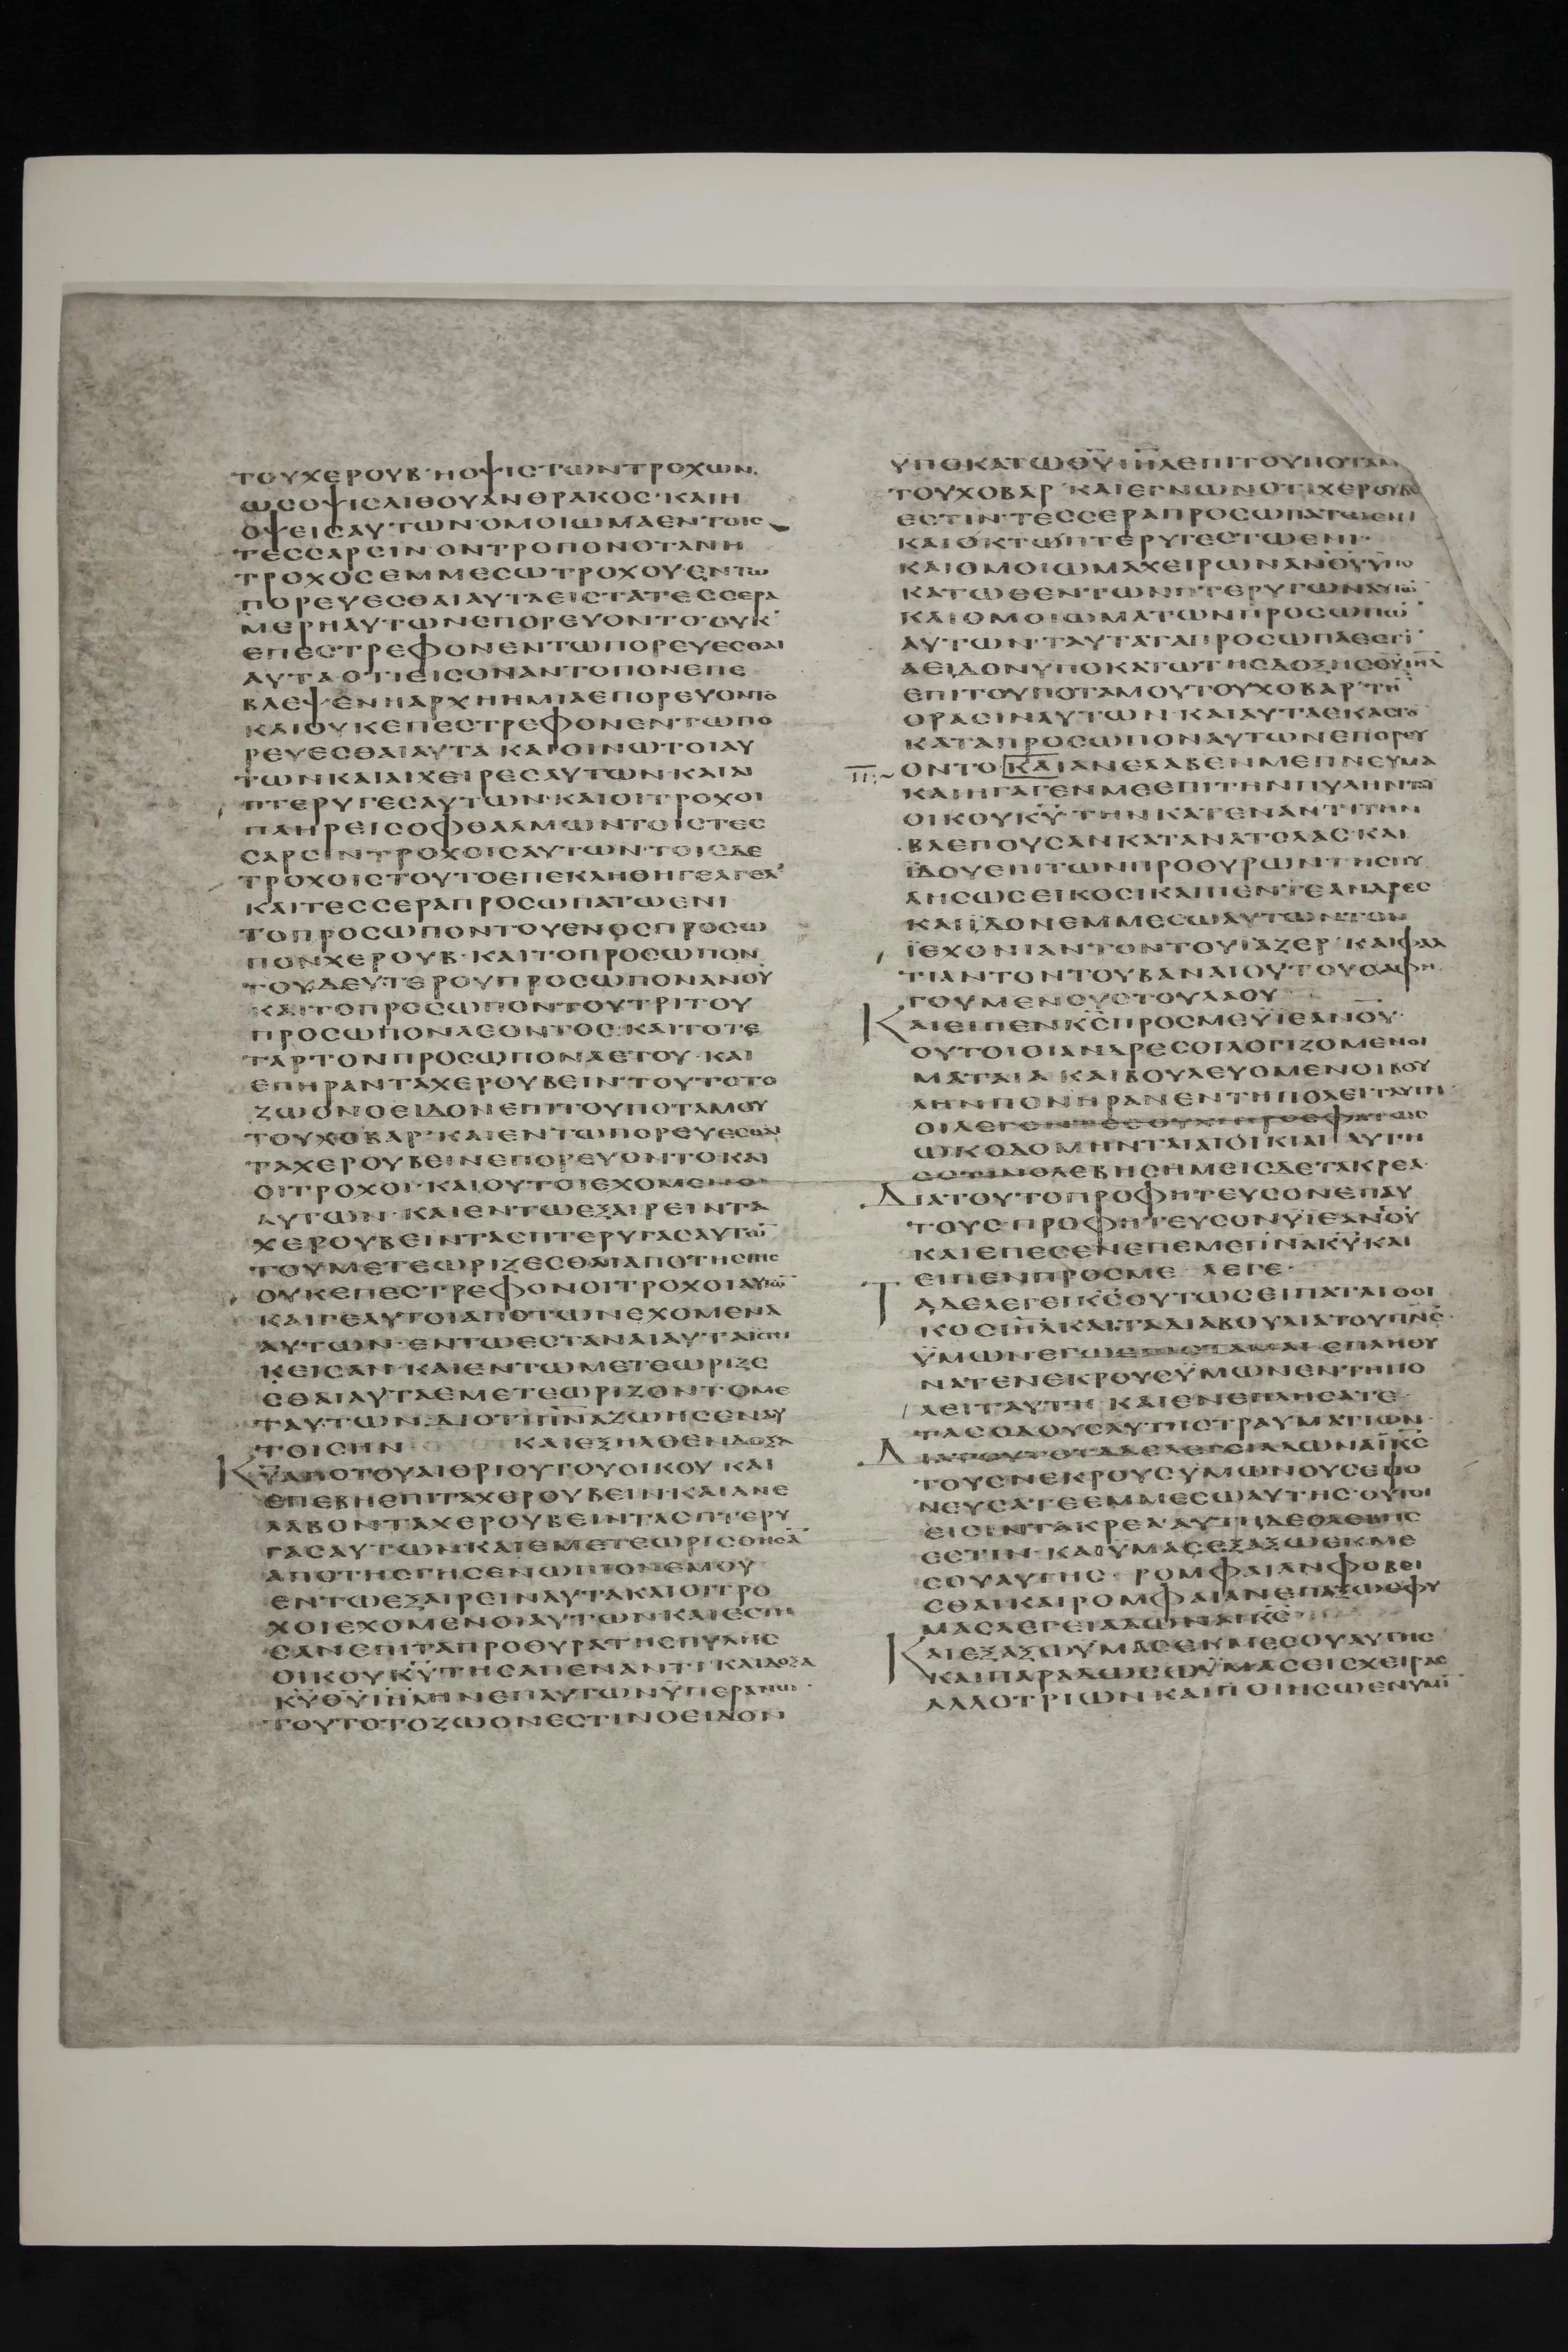 ΤΟΥΧΕΡΟΥΒ·ΗΟΨΙΣΤΩΝΤΡΟΧΩΝ
ΩΣΟΨΙΣΛΙΘΟΥΑΝΘΡΑΚΟΣ·ΚΑΙΗ
ΟΨΕΙΣΑΥΤΩΝ·ΟΜΟΙΩΜΑΕΝΤΟΙΣ
ΤΕΣΣΑΡΣΙΝ·ΟΝΤΡΟΠΟΝΟΤΑΝΗ
ΤΡΟΧΟΣΕΜΜΕΣΩΤΡΟΧΟΥΕΝΤΩ
ΠΟΡΕΥΕΣΘΑΙΑΥΤΑΕΙΣΤΑΤΕΣΣΕΡΑ
ΜΕΡΗΑΥΤΩΝΕΠΟΡΕΥΟΝΤΟ·ΟΥΚ
ΕΠΕΣΤΡΕΦΟΝΕΝΤΩΠΟΡΕΥΕΣΘΑΙ
ΑΥΤΑΟΤΙΕΙΣΟΝΑΝΤΟΠΟΝΕΠΕ
ΒΛΕΨΕΝΗΑΡΧΗΗΜΙΑΕΠΟΡΕΥΟΝΤΟ
ΚΑΙΟΥΚΕΠΕΣΤΡΕΦΟΝΕΝΤΩΠΟ
ΡΕΥΕΣΘΑΙΑΥΤΑ ΚΑΙΟΙΝΩΤΟΙΑΥ
ΤΩΝΚΑΙΑΙΧΕΙΡΕΣΑΥΤΩΝ·ΚΑΙΑΙ
ΠΤΕΡΥΓΕΣΑΥΤΩΝ·ΚΑΙΟΙΤΡΟΧΟΙ
ΠΛΗΡΕΙΣΟΦΘΑΛΜΩΝΤΟΙΣΤΕΣ
ΣΑΡΣΙΝΤΡΟΧΟΙΣΑΥΤΩΝ·ΤΟΙΣΔΕ
ΤΡΟΧΟΙΣΤΟΥΤΟΕΠΕΚΛΗΘΗΓΕΛΓΕΛ
ΚΑΙΤΕΣΣΕΡΑΠΡΟΣΩΠΑΤΩΕΝΙ
ΤΟΠΡΟΣΩΠΟΝΤΟΥΕΝΟΣΠΡΟΣΩ
ΠΟΝΧΕΡΟΥΒ·ΚΑΙΤΟΠΡΟΣΩΠΟΝ
ΤΟΥΔΕΥΤΕΡΟΥΠΡΟΣΩΠΟΝΑΝΟΥ
ΚΑΙΤΟΠΡΟΣΩΠΟΝΤΟΥΤΡΙΤΟΥ
ΠΡΟΣΩΠΟΝΛΕΟΝΤΟΣ·ΚΑΙΤΟΤΕ
ΤΑΡΤΟΝΠΡΟΣΩΠΟΝΑΕΤΟΥ·ΚΑΙ
ΕΠΗΡΑΝΤΑΧΕΡΟΥΒΕΙΝ·ΤΟΥΤΟΤΟ
ΖΩΟΝΟΕΙΔΟΝΕΠΙΤΟΥΠΟΤΑΜΟΥ
ΤΟΥΧΟΒΑΡ·ΚΑΙΕΝΤΩΠΟΡΕΥΕΣΘΑΙ
ΤΑΧΕΡΟΥΒΕΙΝΕΠΟΡΕΥΟΝΤΟΚΑΙ
ΟΙΤΡΟΧΟΙ·ΚΑΙΟΥΤΟΙΕΧΟΜΕΝΟΙ
ΑΥΤΩΝ·ΚΑΙΕΝΤΩΕΞΑΙΡΕΙΝΤΑ
ΧΕΡΟΥΒΕΙΝΤΑΣΠΤΕΡΥΓΑΣΑΥΤΩ̄
ΤΟΥΜΕΤΕΩΡΙΖΕΣΘΑΙΑΠΟΤΗΣΓΗΣ
ΟΥΚΕΠΕΣΤΡΕΦΟΝΟΙΤΡΟΧΟΙΑΥΤΩ̄
ΚΑΙΓΕΑΥΤΟΙΑΠΟΤΩΝΕΧΟΜΕΝΑ
ΑΥΤΩΝ·ΕΝΤΩΕΣΤΑΝΑΙΑΥΤΑΪΣΤΗ
ΚΕΙΣΑΝ·ΚΑΙΕΝΤΩΜΕΤΕΩΡΙΖΕ
ΣΘΑΙΑΥΤΑΕΜΕΤΕΩΡΙΖΟΝΤΟΜΕ
ΤΑΥΤΩΝ·ΔΙΟΤΙΠΝΑΖΩΗΣΕΝΑΥ
ΤΟΙΣΗΝ ΚΑΙΕΞΗΛΘΕΝΔΟΞΑ
ΚΥΑΠΟΤΟΥΑΙΘΡΙΟΥΤΟΥΟΙΚΟΥ ΚΑΙ
ΕΠΕΒΗΕΠΙΤΑΧΕΡΟΥΒΕΙΝ·ΚΑΙΑΝΕ
ΛΑΒΟΝΤΑΧΕΡΟΥΒΕΙΝΤΑΣΠΤΕΡΥ
ΓΑΣΑΥΤΩΝ·ΚΑΙΕΜΕΤΕΩΡΙΣΘΗΣᾹ
ΑΠΟΤΗΣΓΗΣΕΝΩΠΙΟΝΕΜΟΥ
ΕΝΤΩΕΞΑΙΡΕΙΝΑΥΤΑΚΑΙΟΙΤΡΟ
ΧΟΙΕΧΟΜΕΝΟΙΑΥΤΩΝΚΑΙΕΣΤΗ
ΣΑΝΕΠΙΤΑΠΡΟΘΥΡΑΤΗΣΠΥΛΗΣ
ΟΙΚΟΥΚΥΤΗΣΑΠΕΝΑΝΤΙ·ΚΑΙΔΟΞΑ
ΚΥΘΥΙΗΛΗΝΕΠΑΥΤΩΝΫΠΕΡΑΝΩ
ΤΟΥΤΟΤΟΖΩΟΝΕΣΤΙΝΟΕΙΔΟΝ
ΥΠΟΚΑΤΩΘΥΙΗΛΕΠΙΤΟΥΠΟΤΑΜ
ΤΟΥΧΟΒΑΡ ΚΑΙΕΓΝΩΝΟΤΙΧΕΡΟΥΒ
ΕΣΤΙΝ·ΤΕΣΣΕΡΑΠΡΟΣΩΠΑΤΩΕΝΙ
ΚΑΙΟΚΤΩΠΤΕΡΥΓΕΣΤΩΕΝΙ·
ΚΑΙΟΜΟΙΩΜΑΧΕΙΡΩΝΑΝΟΥΫΠΟ
ΚΑΤΩΘΕΝΤΩΝΠΤΕΡΥΓΩΝΑΥΤΩ̄
ΚΑΙΟΜΟΙΩΜΑΤΩΝΠΡΟΣΩΠΩ̄
ΑΥΤΩΝ·ΤΑΥΤΑΤΑΠΡΟΣΩΠΑΕΣΤΙ
ΑΕΙΔΟΝΥΠΟΚΑΤΩΤΗΣΔΟΞΗΣΘΥΙΗΛ
ΕΠΙΤΟΥΠΟΤΑΜΟΥΤΟΥΧΟΒΑΡ·ΤΗ̄
ΟΡΑΣΙΝΑΥΤΩΝ·ΚΑΙΑΥΤΑΕΚΑΣΤΟ
ΚΑΤΑΠΡΟΣΩΠΟΝΑΥΤΩΝΕΠΟΡΕΥ
ΟΝΤΟ·ΚΑΙΑΝΕΛΑΒΕΝΜΕΠΝΕΥΜΑ
ΚΑΙΗΓΑΓΕΝΜΕΕΠΙΤΗΝΠΥΛΗΝΤΟΥ
ΟΙΚΟΥΚΥ ΤΗΝΚΑΤΕΝΑΝΤΙΤΗΝ
ΒΛΕΠΟΥΣΑΝΚΑΤΑΝΑΤΟΛΑΣ·ΚΑΙ
ΪΔΟΥΕΠΙΤΩΝΠΡΟΘΥΡΩΝΤΗΣΠΥ
ΛΗΣΩΣΕΙΚΟΣΙΚΑΙΠΕΝΤΕΑΝΔΡΕΣ
ΚΑΙΪΔΟΝΕΜΜΕΣΩΑΥΤΩΝΤΟΝ
ΪΕΧΟΝΙΑΝΤΟΝΤΟΥΪΑΖΕΡ ΚΑΙΦΑΛ
ΤΙΑΝΤΟΝΤΟΥΒΑΝΑΙΟΥΤΟΥΣΑΦΗ
ΓΟΥΜΕΝΟΥΣΤΟΥΛΑΟΥ
ΚΑΙΕΙΠΕΝΚΣΠΡΟΣΜΕΫΙΕΑΝΟΥ·
ΟΥΤΟΙΟΙΑΝΔΡΕΣΟΙΛΟΓΙΖΟΜΕΝΟΙ
ΜΑΤΑΙΑ ΚΑΙΒΟΥΛΕΥΟΜΕΝΟΙΒΟΥ
ΛΗΝΠΟΝΗΡΑΝΕΝΤΗΠΟΛΕΙΤΑΥΤΗ
ΟΙΛΕΓΟΝΤΕΣΟΥΧΙΠΡΟΣΦΑΤΩΣ
ΩΚΟΔΟΜΗΝΤΑΙΑΙΟΙΚΙΑΙ ΑΥΤΗ
ΕΣΤΙΝΟΛΕΒΗΣΗΜΕΙΣΔΕΤΑΚΡΕΑ
ΔΙΑΤΟΥΤΟΠΡΟΦΗΤΕΥΣΟΝΕΠΑΥ
ΤΟΥΣ·ΠΡΟΦΗΤΕΥΣΟΝΥΙΕΑΝΟΥ
ΚΑΙΕΠΕΣΕΝΕΠΕΜΕΠΝΑΚΥΚΑΙ
ΕΙΠΕΝΠΡΟΣΜΕ ΛΕΓΕ·
ΤΑΔΕΛΕΓΕΙΚΣΟΥΤΩΣΕΙΠΑΤΑΙΟΟΙ
ΚΟΣΙΗΛΚΑΙΤΑΔΙΑΒΟΥΛΙΑΤΟΥΠΝΣ
ΫΜΩΝΕΓΩΕΠΙΣΤΑΜΑΙΕΠΛΗΘΥ
ΝΑΤΕΝΕΚΡΟΥΣΫΜΩΝΕΝΤΗΠΟ
ΛΕΙΤΑΥΤΗ ΚΑΙΕΝΕΠΛΗΣΑΤΕ
ΤΑΣΟΔΟΥΣΑΥΤΗΣΤΡΑΥΜΑΤΙΩΝ·
ΔΙΑΤΟΥΤΟΤΑΔΕΛΕΓΕΙΑΔΩΝΑΪΚΣ
ΤΟΥΣΝΕΚΡΟΥΣΥΜΩΝΟΥΣΕΦΟ
ΝΕΥΣΑΤΕΕΜΜΕΣΩΑΥΤΗΣ·ΟΥΤΟΙ
ΕΙΣΙΝΤΑΚΡΕΑ·ΑΥΤΗΔΕΟΛΕΒΗΣ
ΕΣΤΙΝ·ΚΑΙΥΜΑΣΕΞΑΞΩΕΚΜΕ
ΣΟΥΑΥΤΗΣ· ΡΟΜΦΑΙΑΝΦΟΒΕΙ
ΣΘΑΙΚΑΙΡΟΜΦΑΙΑΝΕΠΑΞΩΕΦΥ
ΜΑΣΛΕΓΕΙΑΔΩΝΑΙΚΣ
ΚΑΙΕΞΑΞΩΥΜΑΣΕΚΜΕΣΟΥΑΥΤΗΣ
ΚΑΙΠΑΡΑΔΩΣΩΫΜΑΣΕΙΣΧΕΙΡΑΣ
ΑΛΛΟΤΡΙΩΝΚΑΙΠΟΙΗΣΩΕΝΥΜῙ